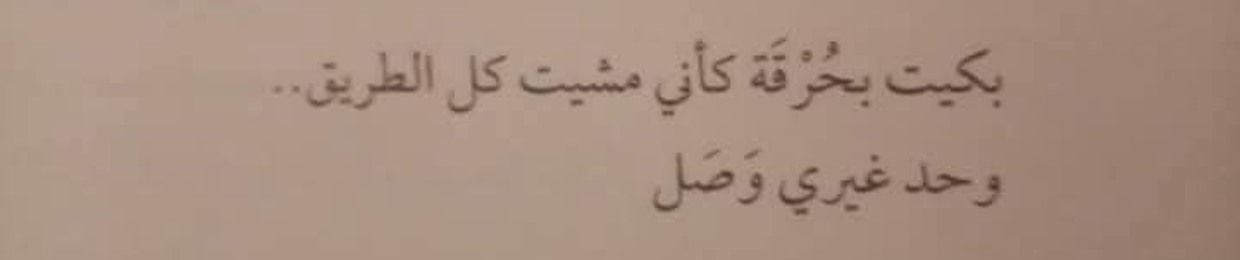 بكيت بحُرْقَة كأني مشيت كل الطريق..
وحد غيري وَصَل